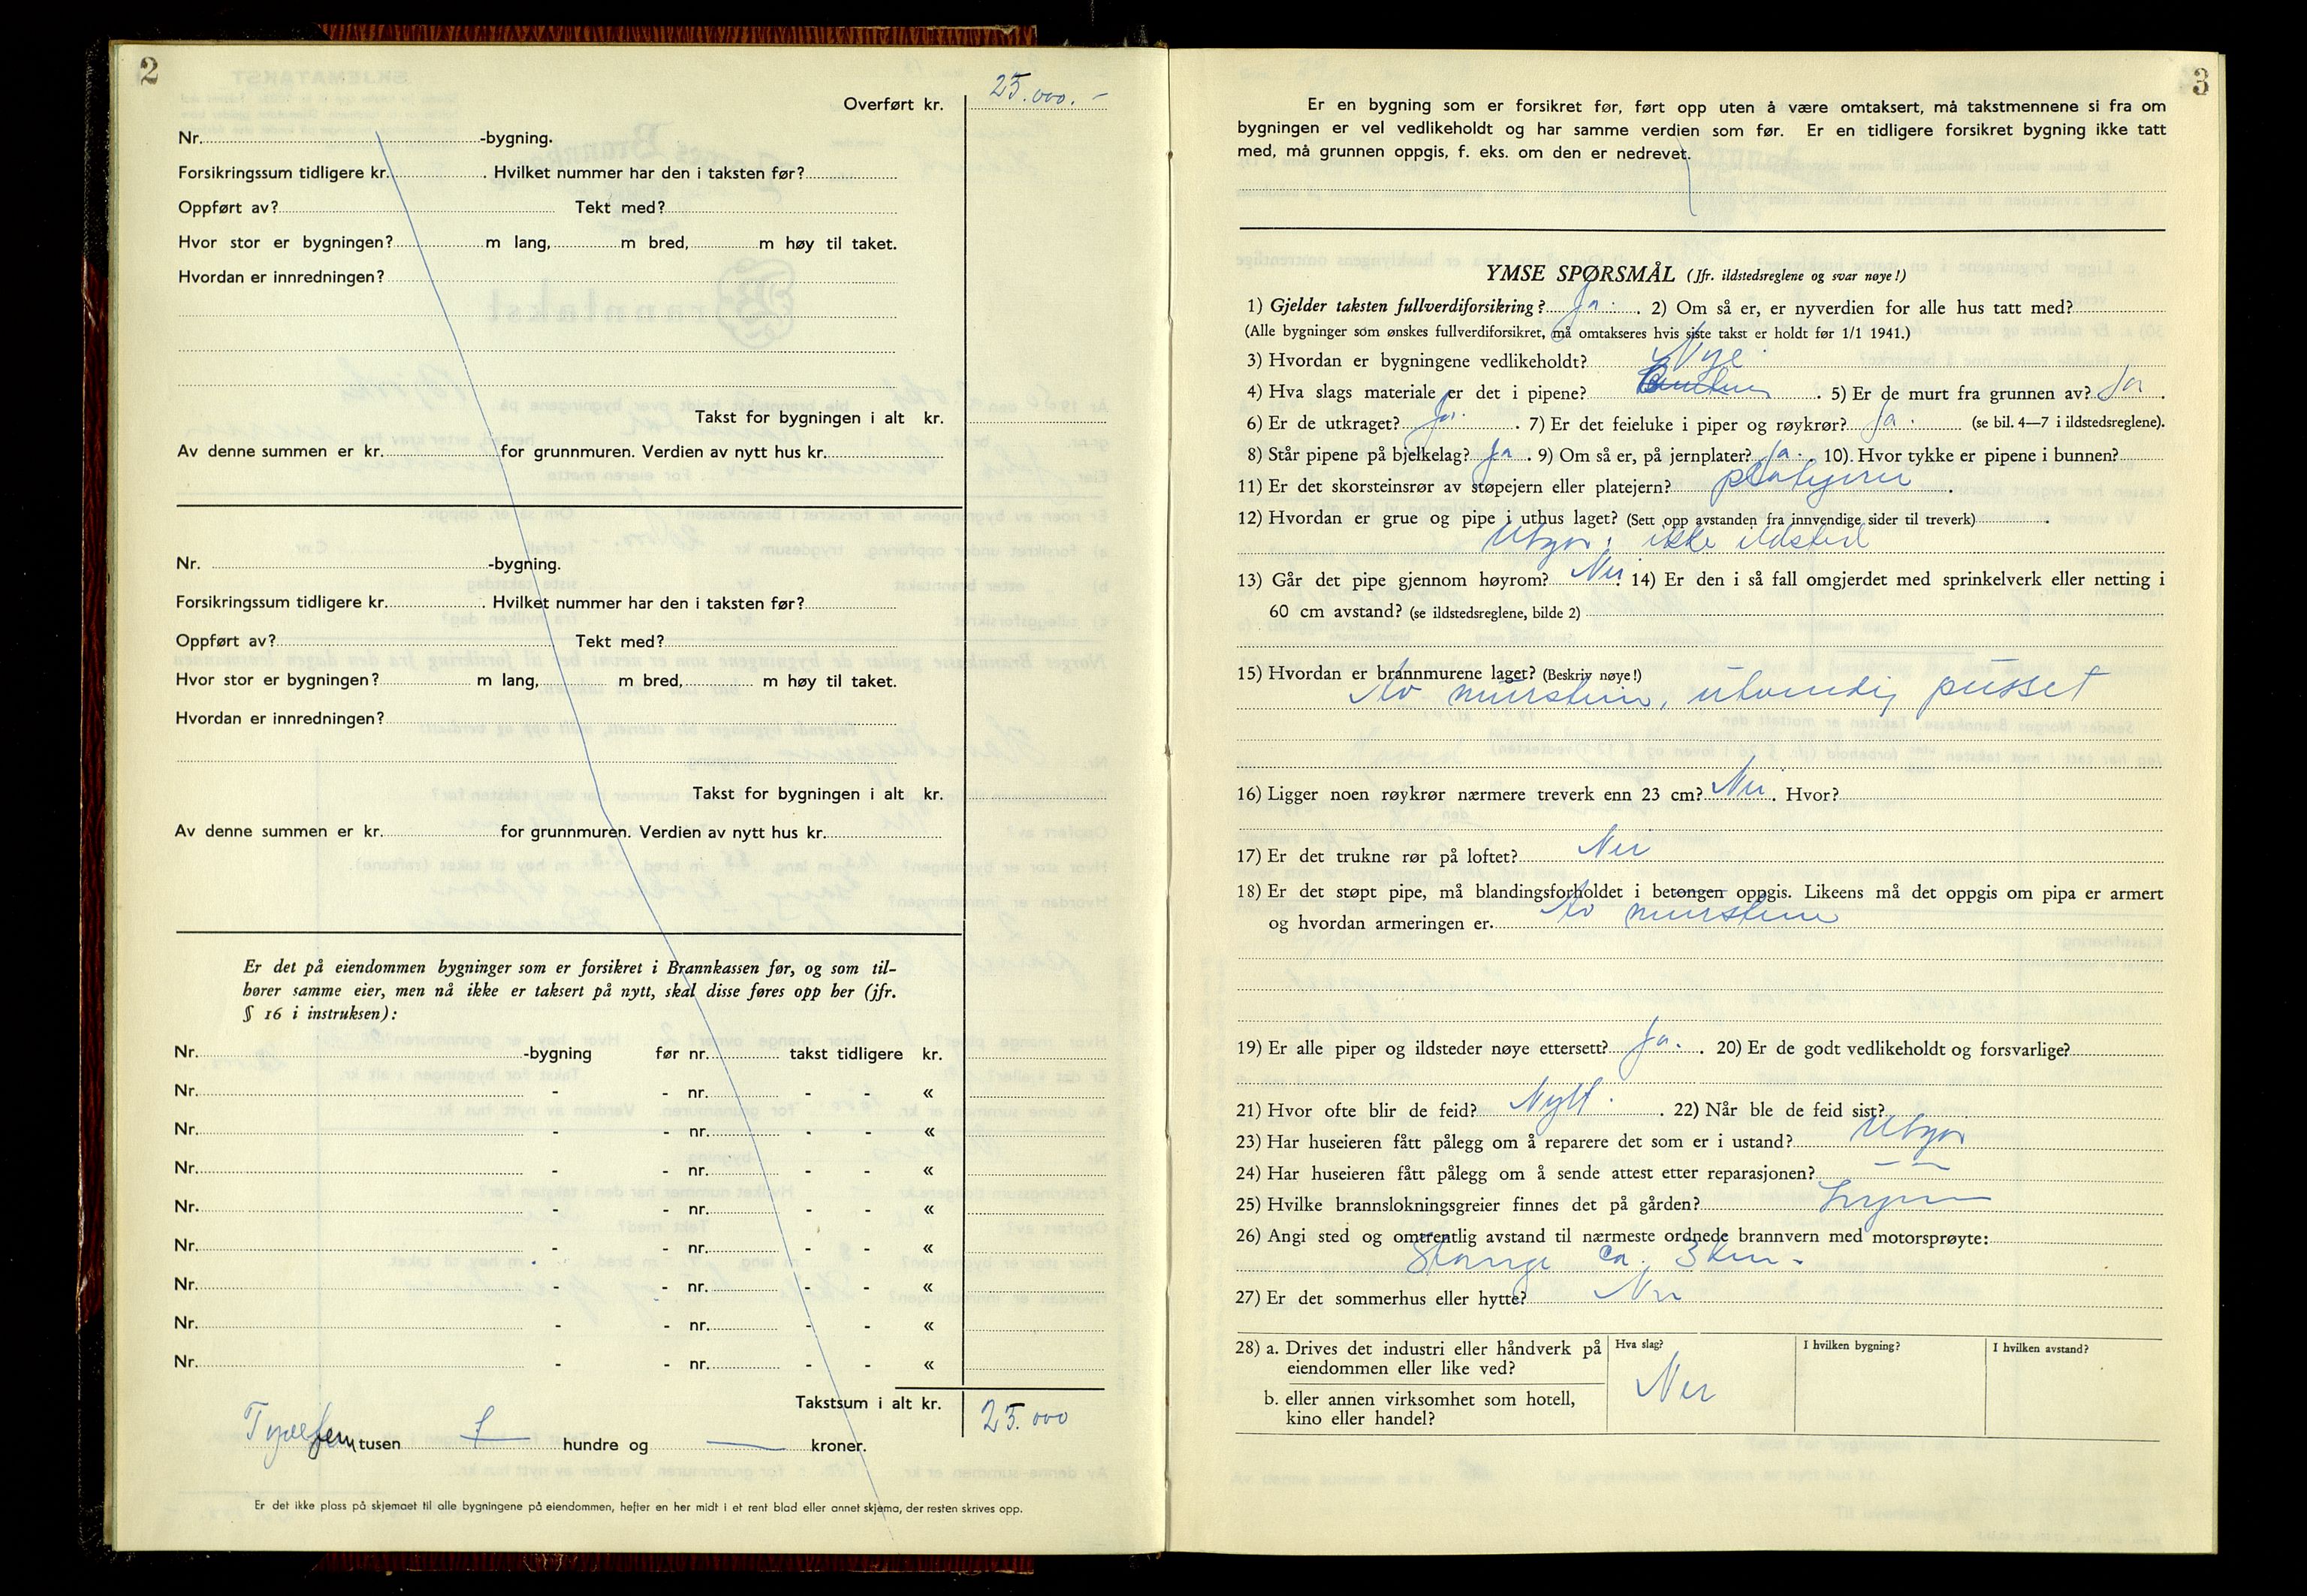 2
Overført kr. 25.000.-
Nr. -bygning.
Forsikringssum tidligere kr. . Hvilket nummer har den i taksten før?
Oppført av? Tekt med?
Hvor stor er bygningen? m lang, m bred, m høy til taket.
Hvordan er innredningen?
Takst for bygningen i alt kr.
Av denne summen er kr. for grunnmuren. Verdien av nytt hus kr.
Nr. -bygning.
Forsikringssum tidligere kr. . Hvilket nummer har den i taksten før?
Oppført av? Tekt med?
Hvor stor er bygningen? m lang, m bred, m høy til taket.
Hvordan er innredningen?
Takst for bygningen i alt kr.
Av denne summen er kr. for grunnmuren. Verdien av nytt hus kr.
Er det på eiendommen bygninger som er forsikret i Brannkassen før, og som til-
hører samme eier, men nå ikke er taksert på nytt, skal disse føres opp her (jfr.
§ 16 i instruksen):
Nr. -bygning før nr. takst tidligere kr.
Nr. - - nr. - - «
Nr. - - nr. - - «
Nr. - - nr. - - «
Nr. - - nr. - - «
Nr. - - nr. - - «
Nr. - - nr. - - «
Nr. - - nr. - - «
Nr. - - nr. - - «
Takstsum i alt kr. 25.000
Tyvefem tusen — hundre og — kroner.
Er det ikke plass på skjemaet til alle bygningene på eiendommen, hefter en her midt i et rent blad eller annet skjema, der resten skrives opp.
3
Er en bygning som er forsikret før, ført opp uten å være omtaksert, må takstmennene si fra om
bygningen er vel vedlikeholdt og har samme verdien som før. Er en tidligere forsikret bygning ikke tatt
med, må grunnen oppgis, f. eks. om den er nedrevet.
YMSE SPØRSMÅL (Jfr. ildstedsreglene og svar nøye!)
1) Gjelder taksten fullverdiforsikring? Ja. . 2) Om så er, er nyverdien for alle hus tatt med?
(Alle bygninger som ønskes fullverdiforsikret, må omtakseres hvis siste takst er holdt før 1/1 1941.)
3) Hvordan er bygningene vedlikeholdt? Nye.
4) Hva slags materiale er det i pipene? . 5) Er de murt fra grunnen av? Ja .
6) Er de utkraget? Ja. . 7) Er det feieluke i piper og røykrør? Ja. (se bil. 4—7 i ildstedsreglene).
8) Står pipene på bjelkelag? Ja . 9) Om så er, på jernplater? Ja. . 10) Hvor tykke er pipene i bunnen?
11) Er det skorsteinsrør av støpejern eller platejern? platejern .
12) Hvordan er grue og pipe i uthus laget? (Sett opp avstanden fra innvendige sider til treverk) .
Utgår, ikke ildsted
13) Går det pipe gjennom høyrom? Nei . 14) Er den i så fall omgjerdet med sprinkelverk eller netting i
60 cm avstand? (se ildstedsreglene, bilde 2)
15) Hvordan er brannmurene laget? (Beskriv nøye!)
Av murstein, utvendig pusset
16) Ligger noen røykrør nærmere treverk enn 23 cm? Nei . Hvor?
17) Er det trukne rør på loftet? Nei
18) Er det støpt pipe, må blandingsforholdet i betongen oppgis. Likeens må det oppgis om pipa er armert
og hvordan armeringen er. Av murstein
19) Er alle piper og ildsteder nøye ettersett? Ja. . 20) Er de godt vedlikeholdt og forsvarlige?
21) Hvor ofte blir de feid? Nytt. . 22) Når ble de feid sist?
23) Har huseieren fått pålegg om å reparere det som er i ustand? Utgår
24) Har huseieren fått pålegg om å sende attest etter reparasjonen? — —
25) Hvilke brannslokningsgreier finnes det på gården? Ingen
26) Angi sted og omtrentlig avstand til nærmeste ordnede brannvern med motorsprøyte:
Stange ca. 3 km.
27) Er det sommerhus eller hytte? Nei
28) a. Drives det industri eller håndverk på
eiendommen eller like ved?
b. eller annen virksomhet som hotell,
kino eller handel?
Hva slag?
Nei
I hvilken bygning?
I hvilken avstand?